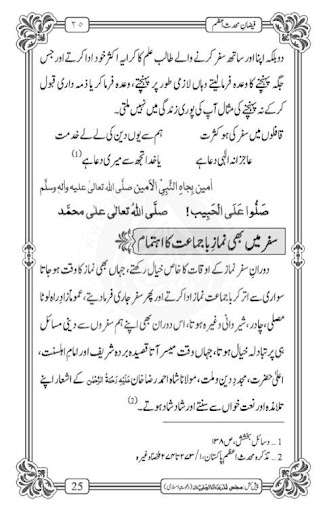 ۲۵ فیضانِ محدثِ اعظم
دو بلکہ اپنا اور ساتھ سفر کرنے والے طالبِ علم کا کرایہ اکثر خود ادا کرتے اور جس
جگہ پہنچنے کا وعدہ فرما لیتے وہاں لازمی طور پر پہنچتے، وعدہ فرما کر یا ذمہ داری قبول
کر کے نہ پہنچنے کی مثال آپ کی پوری زندگی میں نہیں ملتی۔
قافلوں میں سفر کی ہو کثرت ہم سے یوں دین کی لے لے خدمت
عاجزانہ الٰہی دعا ہے یا خدا تجھ سے میری دعا ہے (1)
اٰمین بِجَاہِ النَّبِیِّ الْاَمین صلَّی اللہُ تعالٰی علیہ واٰلہٖ وسلَّم
صَلُّوا عَلَی الْحَبِیب! صلَّی اللہُ تعالٰی علٰی محمَّد
سفر میں بھی نمازِ باجماعت کا اہتمام
دورانِ سفر نماز کے اوقات کا خاص خیال رکھتے، جہاں بھی نماز کا وقت ہو جاتا
سواری سے اتر کر باجماعت نماز ادا کرتے اور پھر سفر جاری فرما دیتے، عموماً زادِ راہ لوٹا
مصلی، چادر، شیروانی وغیرہ ہوتا، اس دوران بھی اپنے ہم سفروں سے دینی مسائل
ہی پر تبادلہ خیال ہوتا، جہاں وقت میسر آتا قصیدہ بردہ شریف اور امامِ اہلسنت،
اعلیٰ حضرت، مجددِ دین و ملت، مولانا شاہ امام احمد رضا خان عَلَیْہِ رَحْمَۃُ الرَّحْمٰن کے اشعار اپنے
تلامذہ اور نعت خواں سے سنتے اور شاد شاد ہوتے۔ (2)
1 ۔ وسائل بخشش، ص ۱۳۸
2 ۔ تذکرہ محدث اعظم پاکستان، ۱/ ۲۷۳ تا ۲۷۴ ملخصاً وغیرہ
25 پیش کش: مجلس (دعوتِ اسلامی)